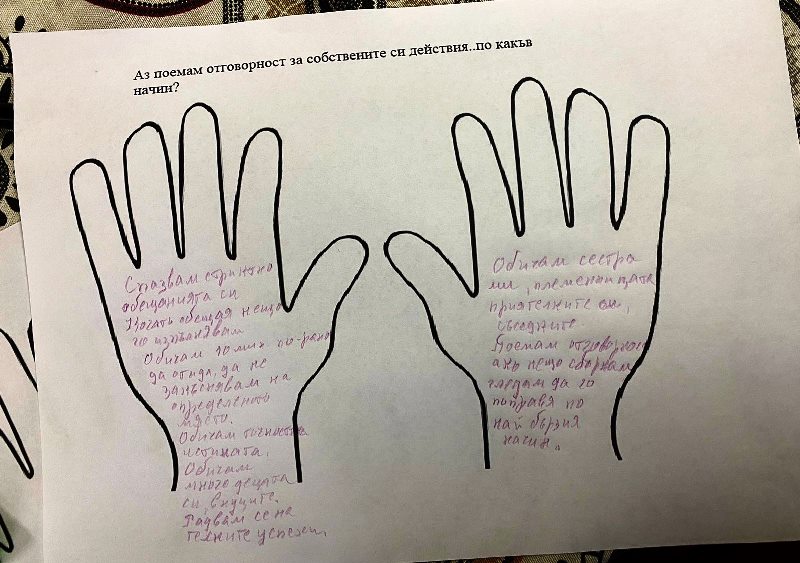 Аз поемам отговорност за собствените си действия..по какъв
начин?
Спазвам стриктно
обещанията си
Когато обещая нещо
го изпълнявам
Обичам 10 мин по-рано
да отида, да не
закъснявам на
определеното
място.
Обичам точността
истината,
Обичам
много децата
си, внуците.
Радвам се на
техните успехи.
Обичам сестра
ми, племенницата
приятелките си,
съседите
Поемам отговорност
ако нещо сбъркам
гледам да го
поправя по
най бързия
начин.